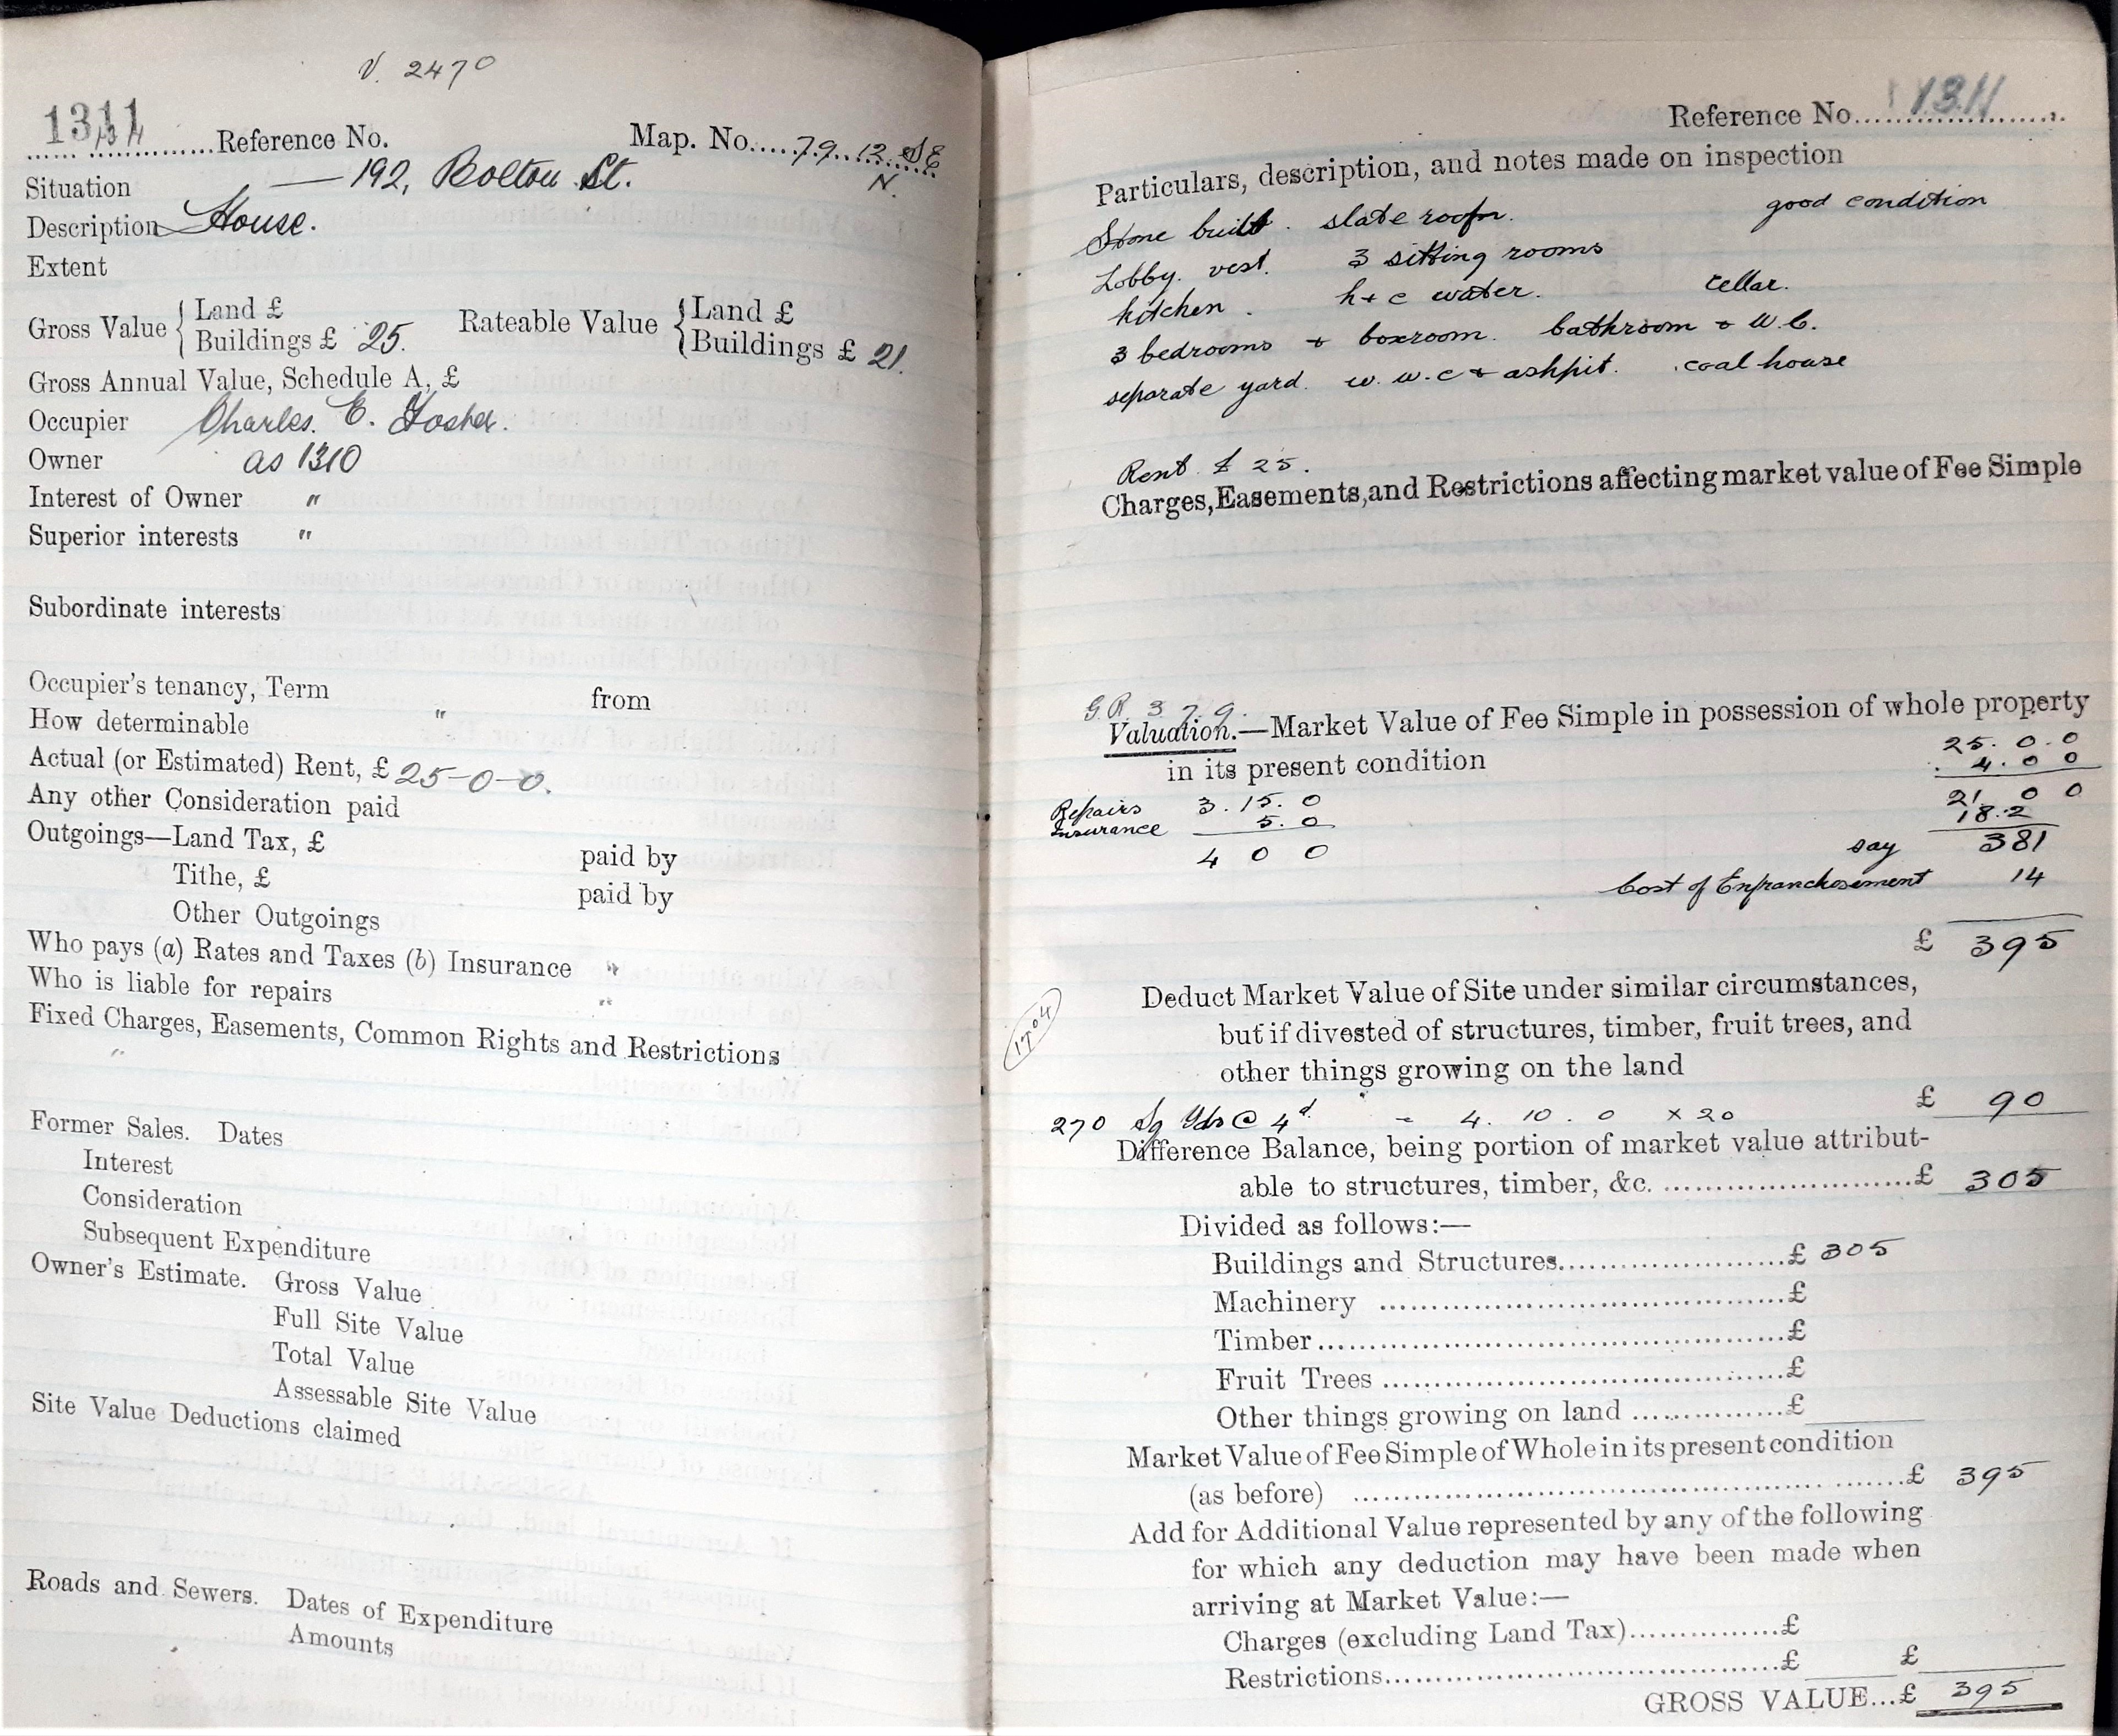 V. 2470
1311 Reference No. Map. No. 79. 12. SE
N.
Situation — 192, Bolton St.
Description House.
Extent
Gross Value { Land £ Rateable Value { Land £
Buildings £ 25. Buildings £ 21.
Gross Annual Value, Schedule A, £
Occupier Charles. E.
Owner as 1310
Interest of Owner "
Superior interests "
Subordinate interests
Occupier's tenancy, Term from
How determinable "
Actual (or Estimated) Rent, £ 25-0-0.
Any other Consideration paid
Outgoings—Land Tax, £ paid by
Tithe, £ paid by
Other Outgoings
Who pays (a) Rates and Taxes (b) Insurance "
Who is liable for repairs "
Fixed Charges, Easements, Common Rights and Restrictions
"
Former Sales. Dates
Interest
Consideration
Subsequent Expenditure
Owner's Estimate. Gross Value
Full Site Value
Total Value
Assessable Site Value
Site Value Deductions claimed
Roads and Sewers. Dates of Expenditure
Amounts
Reference No. 1311
Particulars, description, and notes made on inspection
Stone built. slate roof. good condition
Lobby. vest. 3 sitting rooms
kitchen. h + c water. cellar.
3 bedrooms + boxroom. bathroom + W.C.
separate yard. w. w. c + ashpit. coal house
Rent £ 25.
Charges, Easements, and Restrictions affecting market value of Fee Simple
G.R 3 7 9.
Valuation.—Market Value of Fee Simple in possession of whole property
in its present condition 25. 0. 0
4. 0 0
Repairs 3. 15. 0 21 0 0
Insurance 5. 0 18.2
4 0 0 say 381
Cost of Enfranchisement 14
£ 395
Deduct Market Value of Site under similar circumstances,
but if divested of structures, timber, fruit trees, and
1704
other things growing on the land
270 Sq Yds @ 4d = 4. 10. 0 x 20 £ 90
Difference Balance, being portion of market value attribut-
able to structures, timber, &c. £ 305
Divided as follows:—
Buildings and Structures £ 305
Machinery £
Timber £
Fruit Trees £
Other things growing on land £
Market Value of Fee Simple of Whole in its present condition
(as before) £ 395
Add for Additional Value represented by any of the following
for which any deduction may have been made when
arriving at Market Value:—
Charges (excluding Land Tax) £
Restrictions £ £
GROSS VALUE...£ 395